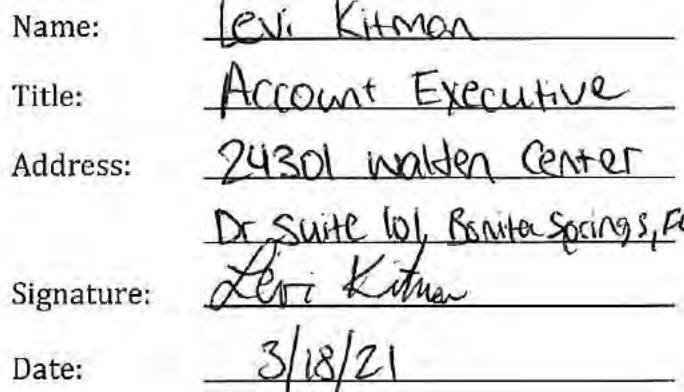 Name: Levi Kitman
Title: Account Executive
Address: 24301 Walden Center
Dr Suite 101, Bonita Springs, FL
Signature: Levi Kitman
Date: 3/18/21